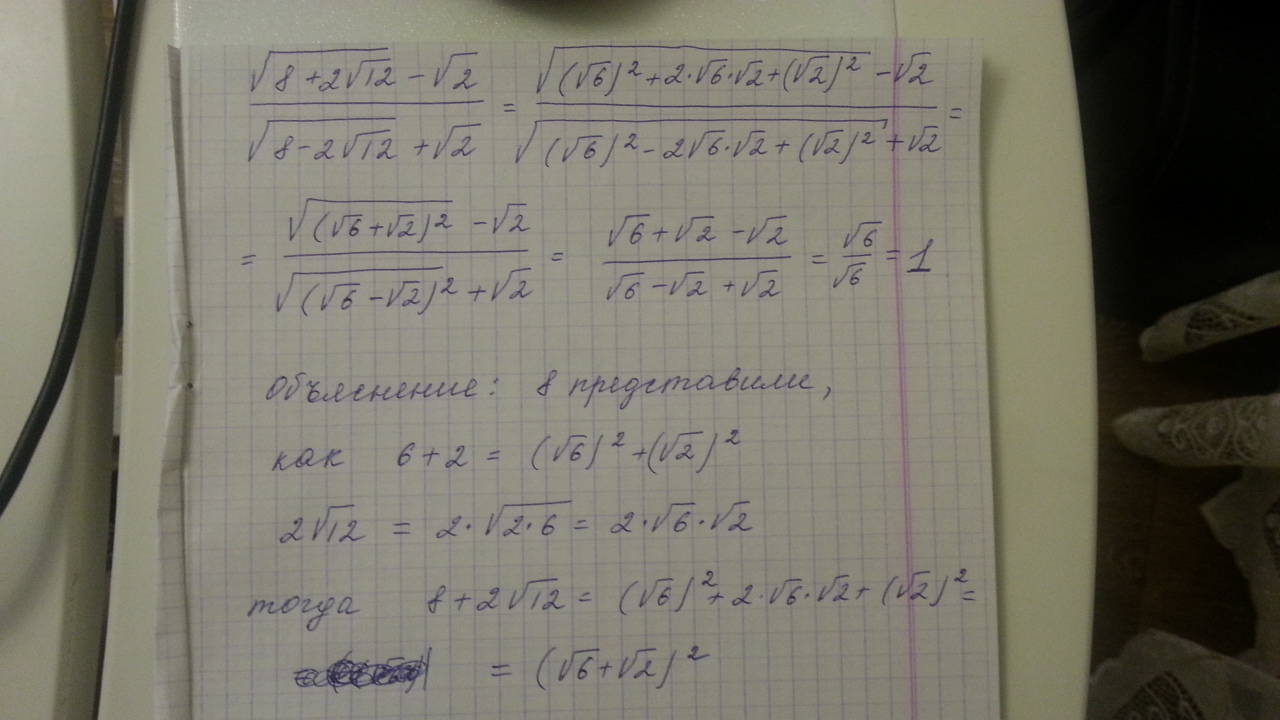 (√(8+2√12) − √2) / (√(8−2√12) + √2) = (√((√6)²+2·√6·√2+(√2)²) − √2) / (√((√6)²−2√6·√2+(√2)²) + √2) =
= (√((√6+√2)²) − √2) / (√((√6−√2)²) + √2) = (√6+√2−√2) / (√6−√2+√2) = √6/√6 = 1
Объяснение: 8 представили,
как 6+2 = (√6)²+(√2)²
2√12 = 2·√(2·6) = 2·√6·√2
тогда 8+2√12 = (√6)²+2·√6·√2+(√2)² =
= (√6+√2)²